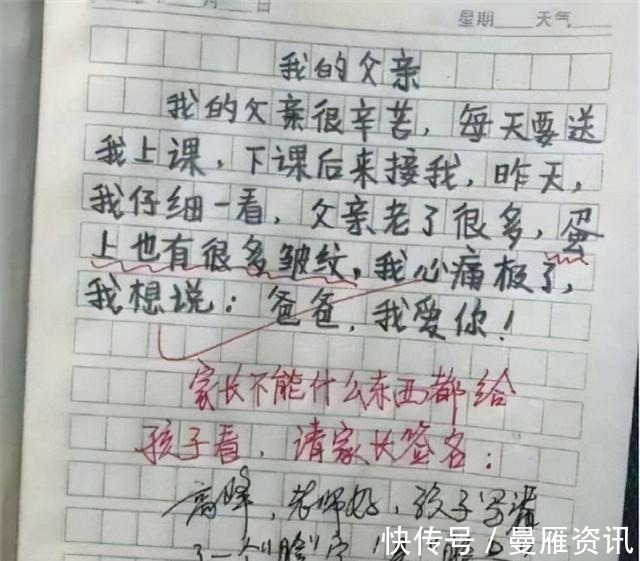 月 日
星期 天气
我的父亲
我的父亲很辛苦，每天要送
我上课，下课后来接我，昨天，
我仔细一看，父亲老了很多，蛋
上也有很多皱纹，我心痛极了，
我想说：爸爸，我爱你！
家长不能什么东西都给
孩子看，请家长签名：
高峰，老师好，孩子写错
了一个"脸"字
快传号／曼雁资讯